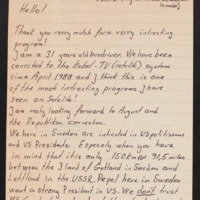 is made)
Hello!
Thank you verry mutch for a verry intresting
program!
I am a 31 years old bordriver. We have been
conected to the Kabel-TV (satelite) system
since April 1988 and I think this is one
of the mosth intresting programes I have
seen on Satelite!
I am realy looking forward to August and
the Republikan Convention.
We here in Sweden are intrested in US politics
and US Presidents. Especely when you have
in mind that it is only 150 Km / 91,5 miles
between the Iland of Gotland in Sweden and
Lettland in the USSR. Pepel here in Sweden
want a strong President in US. We don't trust